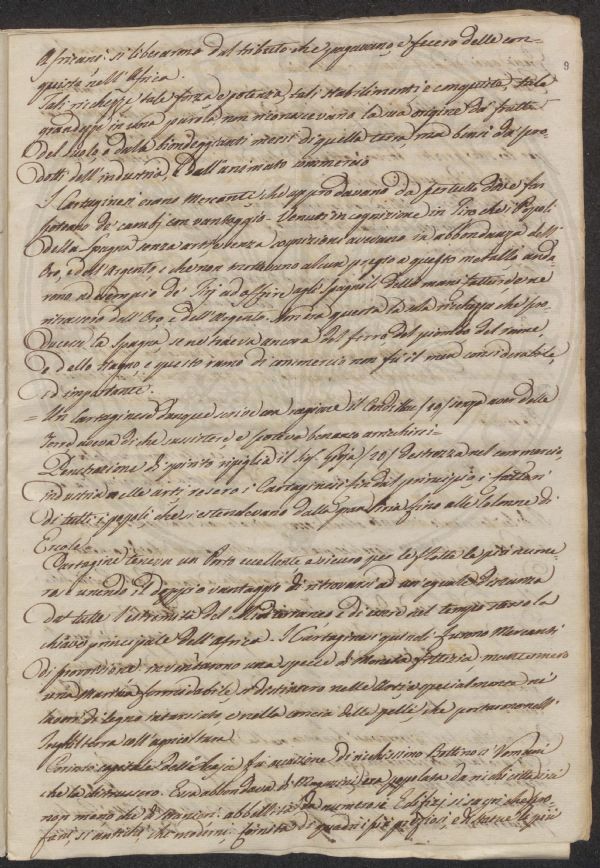 9
Africani si liberarono dal tributo che pagavano, e fecero delle con-
quiste nell'Africa.
Tali ricchezze, tale forza, e potenza, tali stabilimenti e conquiste, tale
grandezza in una parola non riconoscevano la sua origine da' frutti
del suolo, e dalle biondeggianti messi di quella terra, ma bensì da' pro
dotti dell'industria, e dall'animato commercio
I Cartaginesi erano Mercanti che approdavano da per tutto dove far
potevano de' cambj con vantaggio. Venuti in cognizione in Tiro che i Popoli
della Spagna senza arti, e senza cognizioni avevano in abbondanza dell'
Oro, e dell'Argento, e che non mettevano alcun prezzo a questo metallo anda
rono ad esempio de' Tirj ad offrire agli Spagnoli delle manifatture, e ne
ritrassero dell'Oro, e dell'Argento. Non era questa la sola ricchezza che pro-
ducesse la Spagna, se ne traeva ancora del ferro del piombo del rame
e dello stagno, e questo ramo di commercio non fù il men considerabile,
ed importante.
= Un Cartaginese dunque scrive con ragione il senza aver delle
terre aveva di che sussistere e poteva bonanco arricchirsi =
Penetrazione di spirito ripiglia il Sig. destrezza nel commercio,
industria nelle arti, resero i Cartaginesi fin dal principio i fattori
di tutti i popoli che si estendevano dalla fino alle Colonne di
Ercole.
Cartagine teneva un Porto eccellente, e sicuro per le flotte le più nume
rose unendo il doppio vantaggio di ritrovarsi ad un eguale distanza
da tutte l'estremità del Mediterraneo, e di essere nel tempo stesso la
chiave principale dell'Africa. I Cartaginesi quindi furono Mercanti
di professione inventarono una specie di Moneta fittizia mantennero
una Marina formidabile, si distinsero nelle Arti, e specialmente ne'
lavori di legno intarsiato, e nella concia delle pelli, che portarono nell'
Inghilterra coll'agricoltura
Corinto capitale fu occasione di ricchissimo Bottino a' Romani
che la distrussero. Essa abbondava di Magazini, era popolata da ricchi cittadini
non meno che di stranieri. abbellita da numerosi Edifizj, sì sagri che pro
fani, sì antichi, che moderni, fornita di quadri i più preziosi, e di statue le più